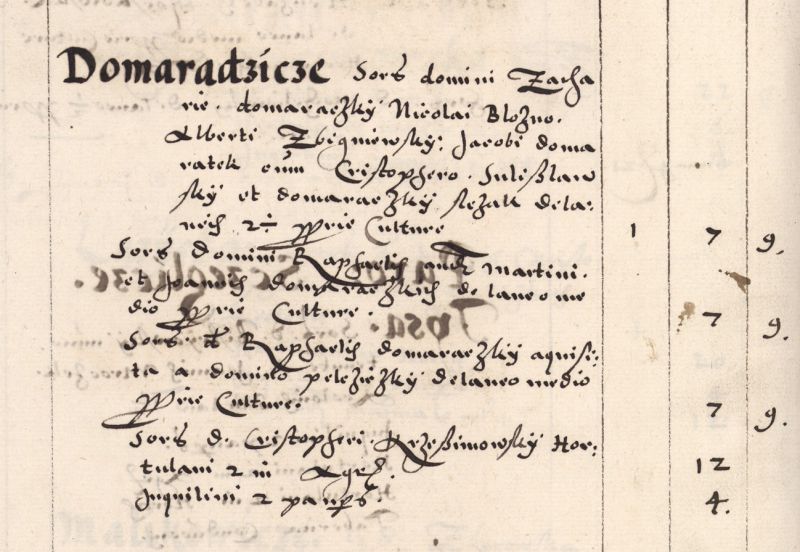 Domaradzicze Sors domini Zacha
rie. domaraczky Nicolai Blozno.
Alberti Zbigniewsky: Jacobi doma
ratek cum Cristophero. Sulißlaw
sky et domaraczky slezak de la:
neis 2 ÷ pprie Culture 1 7 9.
Sors domini Raphaelis Martini.
et Joannis domaraczkich de laneo me
dio pprie Culture. 7 9.
Sors Raphaelis domaraczky aquisi:
ta a domino pelcziczky de laneo medio
pprie Culture. 7 9.
Sors d. Cristopheri. Krzeßimowsky Hor:
tulani 2 in Agris. 12
Inquilini 2 paupes. 4.